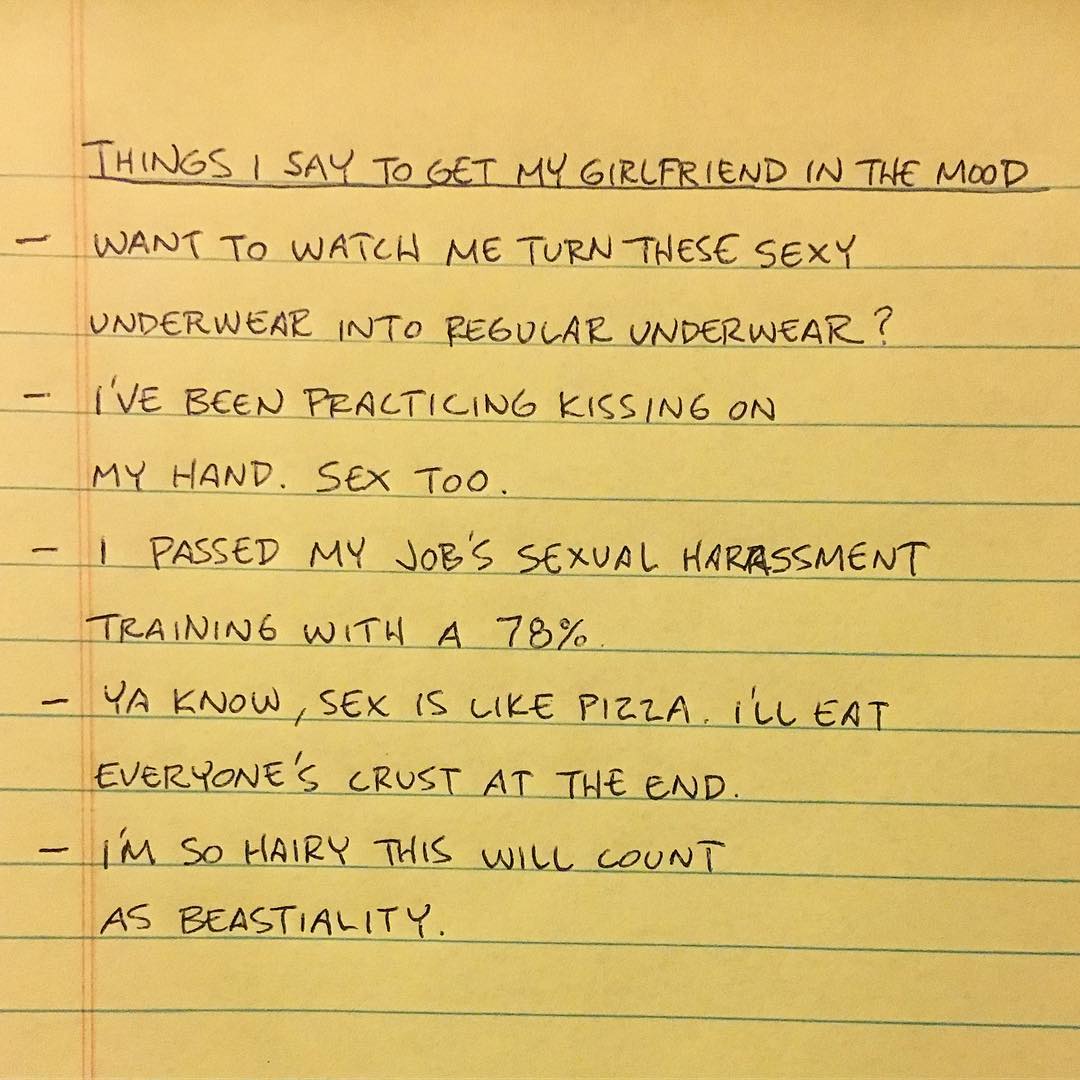 THINGS I SAY TO GET MY GIRLFRIEND IN THE MOOD
- WANT TO WATCH ME TURN THESE SEXY
UNDERWEAR INTO REGULAR UNDERWEAR?
- I'VE BEEN PRACTICING KISSING ON
MY HAND. SEX TOO.
- I PASSED MY JOB'S SEXUAL HARASSMENT
TRAINING WITH A 78%.
- YA KNOW, SEX IS LIKE PIZZA. I'LL EAT
EVERYONE'S CRUST AT THE END.
- I'M SO HAIRY THIS WILL COUNT
AS BEASTIALITY.